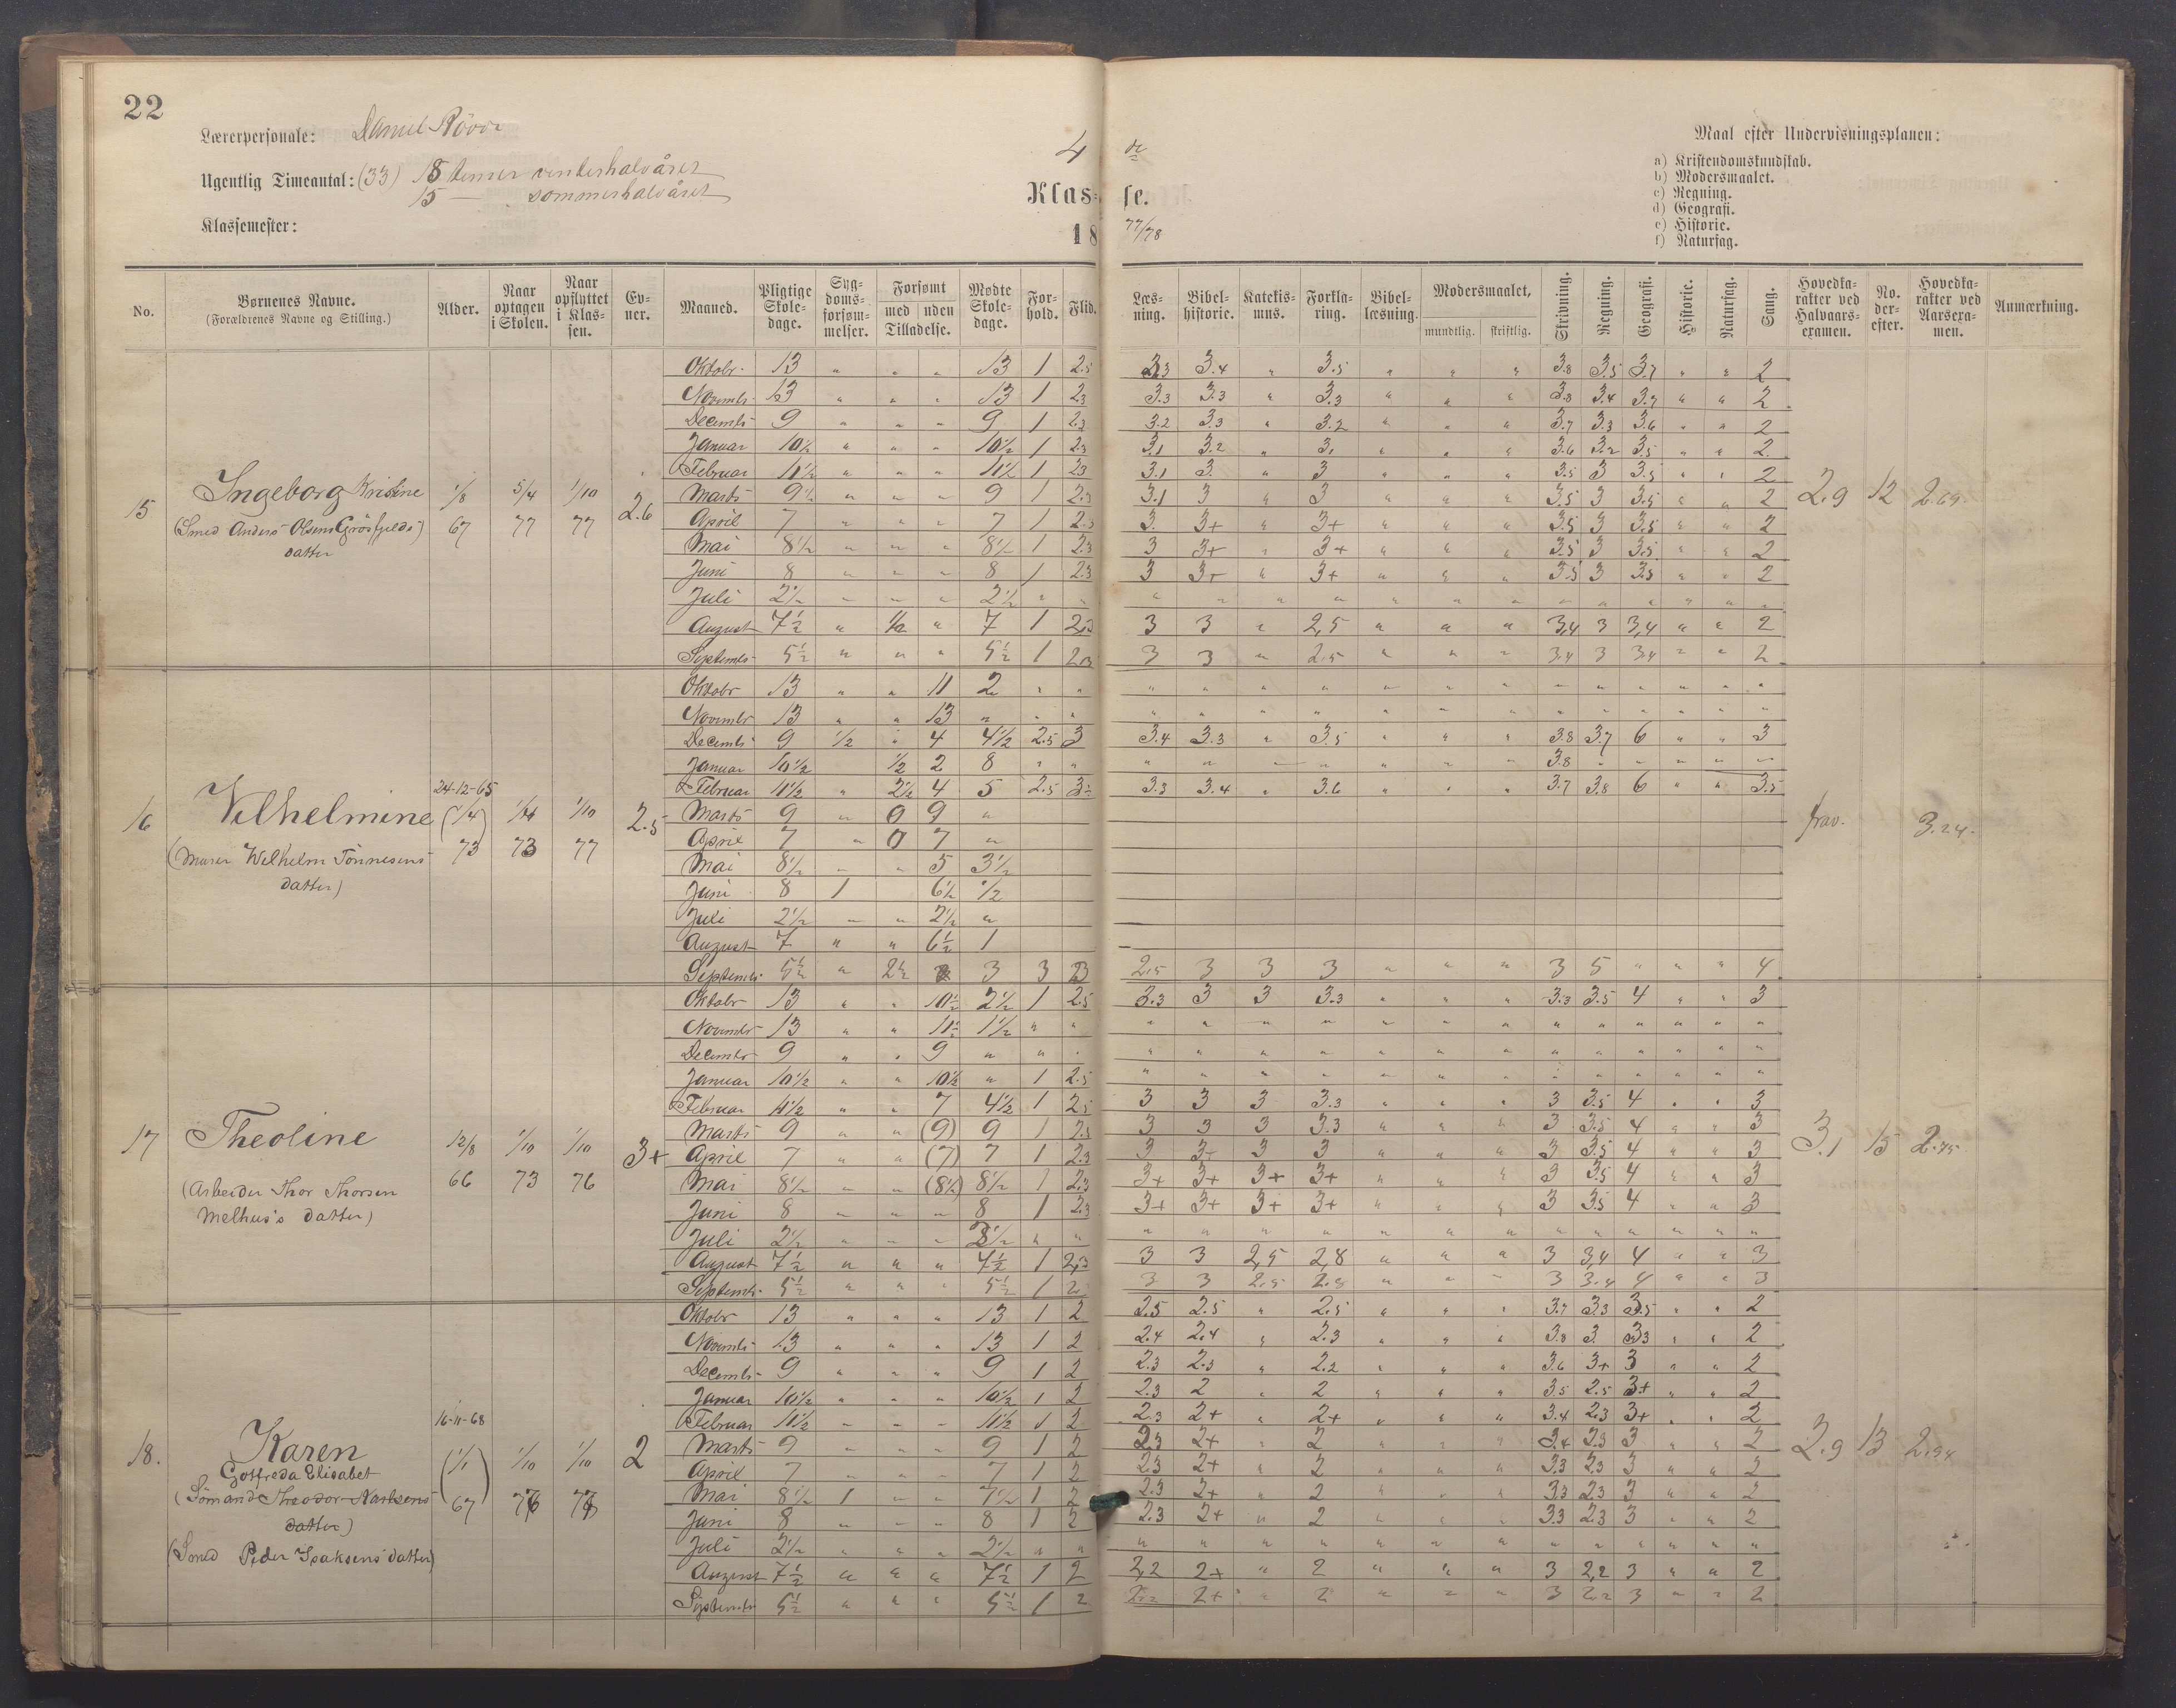 22
Lærerpersonale: Daniel
Ugentlig Timeantal: (33) 18 timer vinterhalvåret
15 — sommerhalvåret
Klassemester:
4 de
Klasse.
18 77/78
Maal efter Undervisningsplanen:
a) Kristendomskundskab.
b) Modersmaalet.
c) Regning.
d) Geografi.
e) Historie.
f) Naturfag.
No. Børnenes Navne. (Forældrenes Navne og Stilling.) Alder. Naar optagen i Skolen. Naar opflyttet i Klassen. Evner. Maaned. Pligtige Skoledage. Sygdomsforsømmelser. Forsømt med uden Tilladelse. Mødte Skoledage. Forhold. Flid. Læsning. Bibelhistorie. Katekismus. Forklaring. Bibellæsning. Modersmaalet, mundtlig. skriftlig. Skrivning. Regning. Geografi. Historie. Naturfag. Sang. Hovedkarakter ved Halvaarsexamen. No. derefter. Hovedkarakter ved Aarsexamen. Anmærkning.
15 Ingeborg Kristine 1/8 67 5/4 77 1/10 77 2.6
(Smed Anders Olsens Grösfjelds
datter
Oktobr 13 " " " 13 1 2.5 3.4 " 3.5 " " " 3.8 3.5 3.7 " " 2
Novembr 13 " " " 13 1 2.3 3.3 3.3 " 3.3 " " " 3.8 3.4 3.7 " " 2
Decembr 9 " " " 9 1 2.3 3.2 3.3 " 3.2 " " " 3.7 3.3 3.6 " " 2
Januar 10½ " " " 10½ 1 2.3 3.1 3.2 " 3. " " " 3.6 3.2 3.5 " " 2
Februar 11½ " " " 11½ 1 2.3 3.1 3. " 3 " " " 3.5 3 3.5 " " 2
Marts 9½ " " " 9 1 2.3 3.1 3 " 3 " " " 3.5 3 3.5 " " 2 2.9 12 2.69
April 7 " " " 7 1 2.3 3. 3+ " 3+ " " " 3.5 3 3.5 " " 2
Mai 8½ " " " 8½ 1 2.3 3 3+ " 3+ " " " 3.5 3 3.5 " " 2
Juni 8 " " " 8 1 2.3 3 3+ " 3+ " " " 3.5 3 3.5 " " 2
Juli 2½ " " " 2½ " " " " " " " " " " " " " " "
August 7½ " ½ " 7 1 2,3 3 3 " 2,5 " " " 3,4 3 3,4 " " 2
Septembr 5½ " " " 5½ 1 2.3 3 3 " 2.5 " " " 3.4 3 3.4 " " 2
16 Vilhelmine 24-12-65 (1/4) 73 73 1/10 77 2.5
(Murer Wilhelm Tönnesens
datter)
Oktobr 13 " " 11 2 " " " " " " " " " " " " " " "
Novembr 13 " " 13 " " " " " " " " " " " " " " " "
Decembr 9 ½ " 4 4½ 2.5 3 3.4 3.3 " 3.5 " " " 3.8 3.7 6 " " 3
Januar 10½ ½ 2 8 " " " " " " " " " 3.8 " " " " "
Februar 11½ " 2½ 4 5 2.5 3.3 3.4 " 3.6 " " " 3.7 3.8 6 " " 3.5
Marts 9 " 0 9 " frav. 3.24.
April 7 " 0 7 "
Mai 8½ " " 5 3½
Juni 8 1 6½ ½
Juli 2½ " " 2½ "
August 7 " " 6½ 1
Septembr 5½ " 2½ 3 3 2.5 3 3 3 " " " 3 5 " " " 4
17 Theoline 12/8 66 1/10 73 1/10 76 3+
(Arbeider Thor Thorsen
Melhus's datter)
Oktobr 13 " " 10½ 2½ 1 2.5 3.3 3 3 3.3 " " " 3.3 3.5 4 " " 3
Novembr 13 " " 11½ 1½ " " " " " " " " " " " " " " "
Decembr 9 " " 9 " " " " " " " " " " " " " " " "
Januar 10½ " " 10½ " 1 2.5 " " " " " " " " " " " " "
Februar 11½ " " 7 4½ 1 2.5 3 3 3 3.3 " " " 3 3.5 4 " " 3
Marts 9 " " (9) 9 1 2.5 3 3 3 3.3 " " " 3 3.5 4 " " 3 3.1 15 2.75
April 7 " " (7) 7 1 2.3 3 3+ 3 3 " " " 3 3.5 4 " " 3
Mai 8½ " " (8½) 8½ 1 2.3 3+ 3+ 3+ 3+ " " " 3 3.5 4 " " 3
Juni 8 " " " 8 1 2.3 3+ 3+ 3+ 3+ " " " 3 3.5 4 " " 3
Juli 2½ " " " 2½ " " " " " " " " " " " " " " "
August 7½ " " " 7½ 1 2,3 3 3 2,5 2,8 " " " 3 3,4 4 " " 3
Septembr 5½ " " " 5½ 1 3 3 2.5 2.8 " " " 3 3.4 4 " " 3
18. Karen 16-11-68 (1/1) 67 1/10 76 1/10 2
Gotfreda Elisabet
(Sömand Theodor Karlsens
datter)
(Smed Peder Isaksens datter)
Oktobr 13 " " " 13 1 2 2.5 2.5 " 2.5 " " " 3.7 3.3 3.5 " " 2
Novembr 13 " " " 13 1 2 2.4 2.4 " 2.3 " " " 3.8 3 3.3 " " 2
Decembr 9 " " " 9 1 2 2.3 2.3 " 2.2 " " " 3.6 3+ 3 " " 2
Januar 10½ " " " 10½ 1 2 2.3 2 " 2 " " " 3.5 2.5 3+ " " 2
Februar 11½ " " " 11½ 1 2 2.3 2+ " 2+ " " " 3.4 2.3 3+ " " 2
Marts 9 " " " 9 1 2 2.3 2+ " 2 " " " 3.4 2.3 3 " " 2 2.9 13 2.94
April 7 " " " 7 1 2 2.3 2+ " 2 " " " 3.3 2.3 3 " " 2
Mai 8½ 1 " " 7½ 1 2 2.3 2+ " 2 " " " 3.3 2.3 3 " " 2
Juni 8 " " " 8 1 2 2.3 2+ " 2 " " " 3.3 2.3 3 " " 2
Juli 2½ " " " 2½ " " " " " " " " " " " " " " "
August 7½ " " " 7½ 1 2 2,2 2+ " 2 " " " 3 2,2 3 " " 2
Septembr 5½ " " " 5½ 1 2 2.2 2+ " 2 " " " 3 2.2 3 " " 2